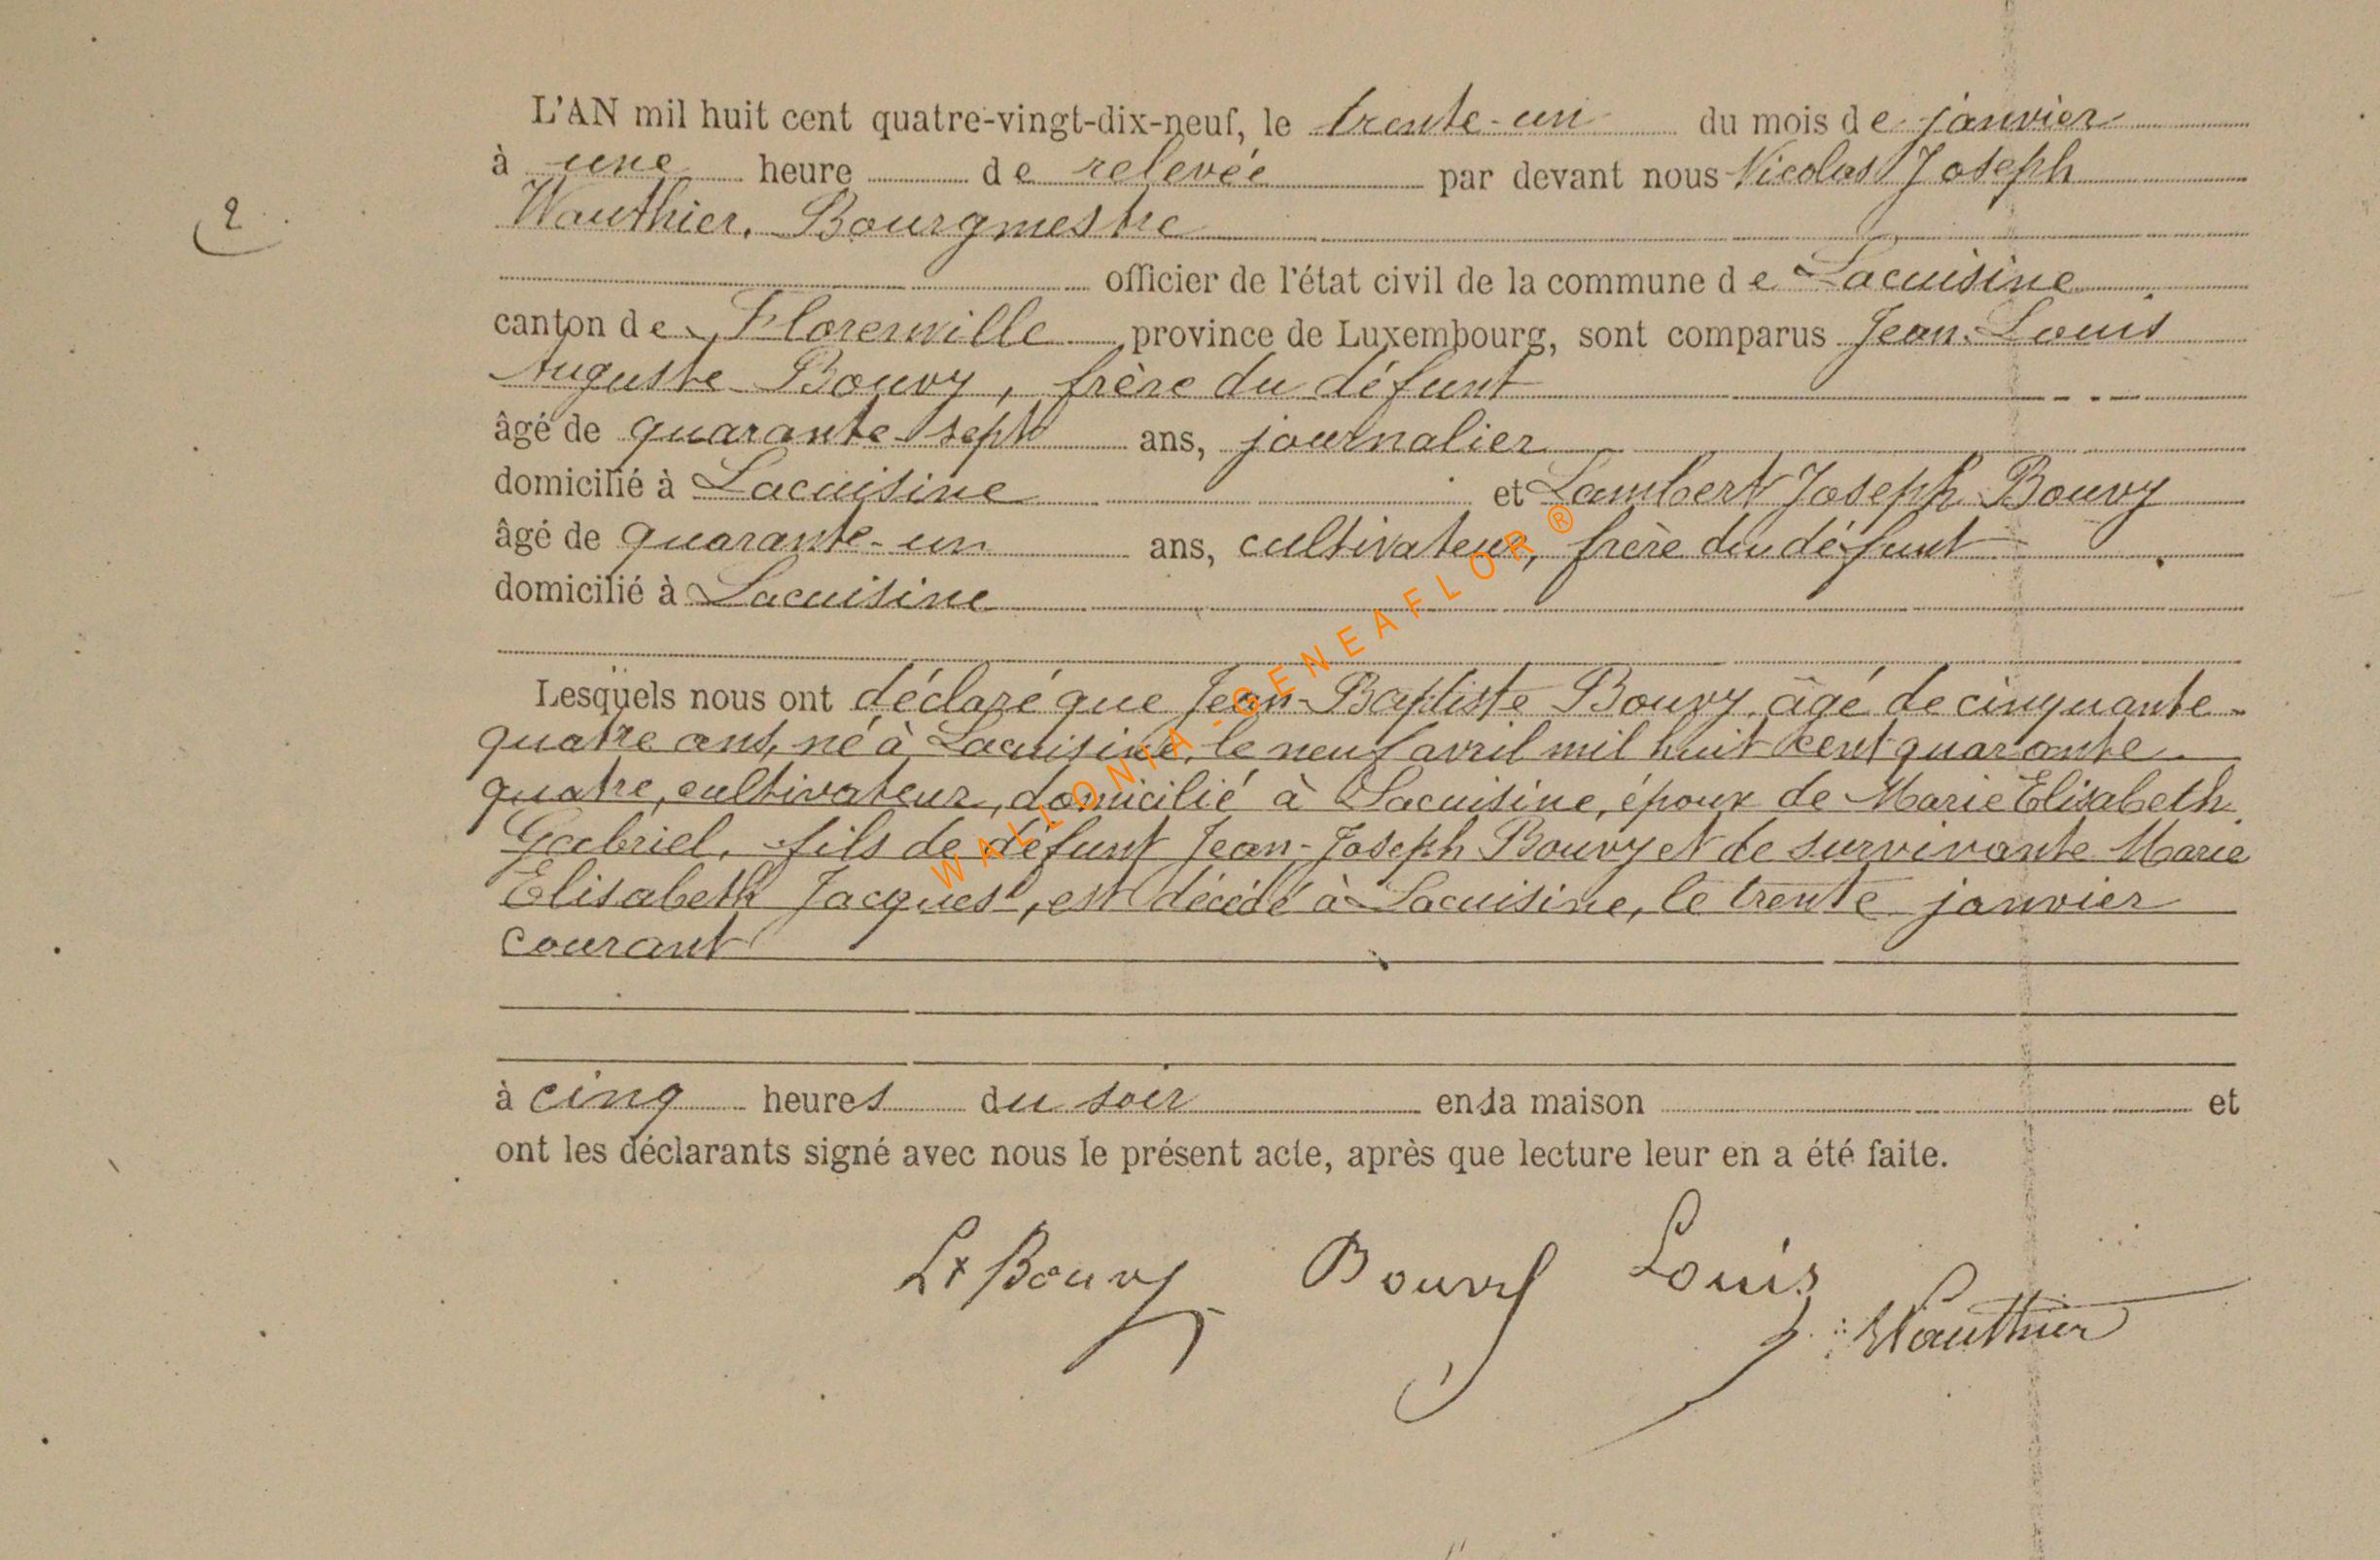 L'AN mil huit cent quatre-vingt-dix-neuf, le trente-un du mois de janvier
à une heure de relevée par devant nous Nicolas Joseph
2
Wauthier, Bourgmestre
officier de l'état civil de la commune de Lacuisine
canton de Florenville province de Luxembourg, sont comparus Jean-Louis
Auguste Bouvy, frère du défunt
âgé de quarante-sept ans, journalier
domicilié à Lacuisine et Lambert Joseph Bouvy
âgé de quarante-un ans, cultivateur, frère du défunt
domicilié à Lacuisine
Lesquels nous ont déclaré que Jean-Baptiste Bouvy, âgé de cinquante-
quatre ans, né à Lacuisine, le neuf avril mil huit cent quarante
quatre, cultivateur, domicilié à Lacuisine, époux de Marie Elisabeth
Gabriel, fils de défunt Jean-Joseph Bouvy et de survivante Marie
Elisabeth Jacques, est décédé à Lacuisine, le trente janvier
courant
à cinq heures du soir en sa maison et
ont les déclarants signé avec nous le présent acte, après que lecture leur en a été faite.
Lt Bouvy Bouvy Louis
J. Wauthier
WALLONIA-GENEAFLOR ®